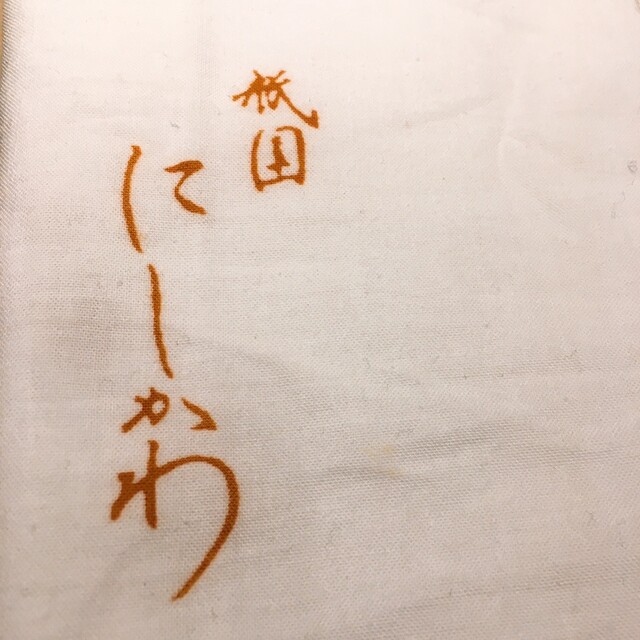 祇園
にしかわ